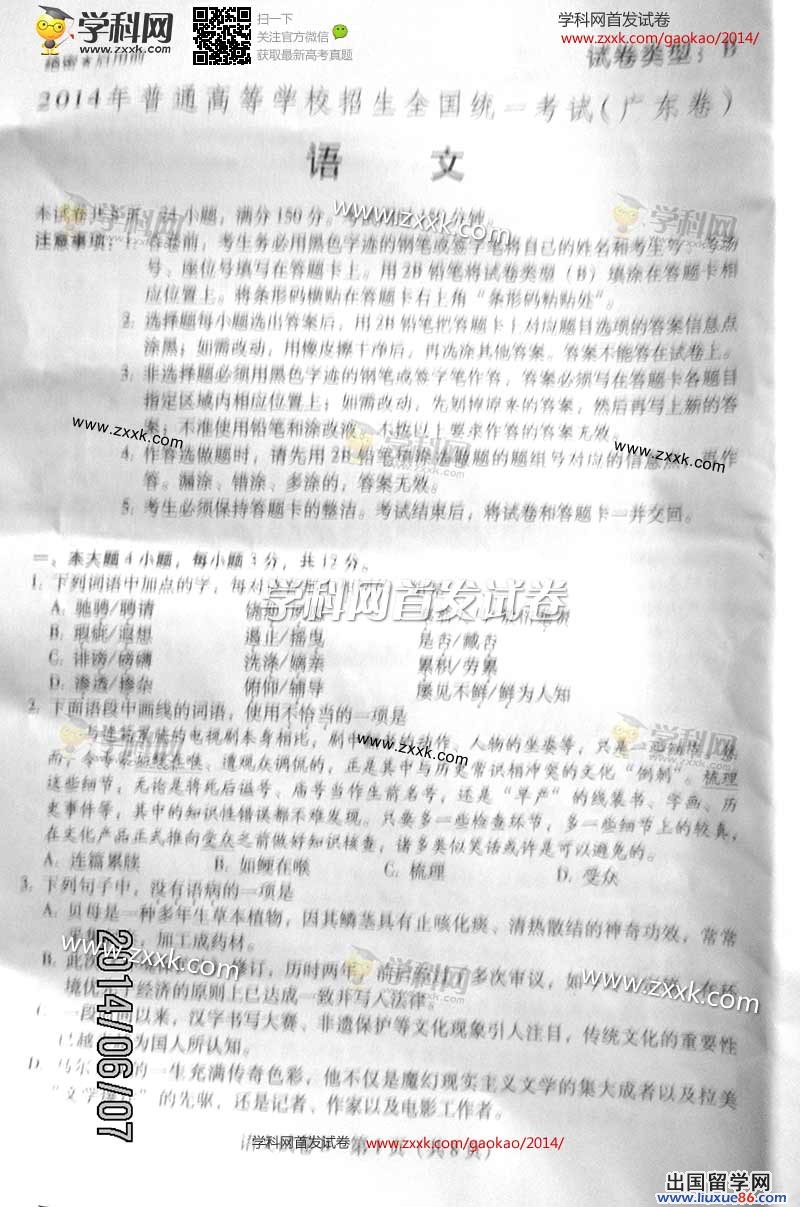 学科网
www.zxxk.com
扫一下
关注官方微信
获取最新高考真题
学科网首发试卷
www.zxxk.com/gaokao/2014/
绝密★启用前
试卷类型：B
2014年普通高等学校招生全国统一考试（广东卷）
语 文
本试卷共8页，24小题，满分150分。
www.zxxk.com
学科网
学科网
注意事项：1. 答卷前，考生务必用黑色字迹的钢笔或签字笔将自己的姓名和考生号、考场
号、座位号填写在答题卡上。用2B铅笔将试卷类型（B）填涂在答题卡相
应位置上。将条形码横贴在答题卡右上角“条形码粘贴处”。
2. 选择题每小题选出答案后，用2B铅笔把答题卡上对应题目选项的答案信息点
涂黑；如需改动，用橡皮擦干净后，再选涂其他答案。答案不能答在试卷上。
3. 非选择题必须用黑色字迹的钢笔或签字笔作答，答案必须写在答题卡各题目
指定区域内相应位置上；如需改动，先划掉原来的答案，然后再写上新的答
案；不准使用铅笔和涂改液。不按以上要求作答的答案无效。
www.zxxk.com
学科网
www.zxxk.com
4. 作答选做题时，请先用2B铅笔填涂选做题的题组号对应的信息点，再作
答。漏涂、错涂、多涂的，答案无效。
5. 考生必须保持答题卡的整洁。考试结束后，将试卷和答题卡一并交回。
一、本大题4小题，每小题3分，共12分。
1. 下列词语中加点的字，每对
学科网首发试卷
A. 驰骋/聘请
B. 瑕疵/遐想 遏止/摇曳 是否/臧否
C. 诽谤/磅礴 洗涤/嫡亲 累积/劳累
D. 渗透/掺杂 俯仰/辅导 屡见不鲜/鲜为人知
2. 下面语段中画线的词语，使用不恰当的一项是
与连篇累牍的电视剧本身相比，剧中 的动作、人物的坐姿等，只是一些细节。然
www.zxxk.com
学科网
而，令专家如鲠在喉、遭观众调侃的，正是其中与历史常识相冲突的文化“倒刺”。梳理
这些细节，无论是将死后谥号、庙号当作生前名号，还是“早产”的线装书、字画、历
史事件等，其中的知识性错误都不难发现。只要多一些检查环节，多一些细节上的较真，
在文化产品正式推向受众之前做好知识核查，诸多类似笑话或许是可以避免的。
A. 连篇累牍 B. 如鲠在喉 C. 梳理 D. 受众
3. 下列句子中，没有语病的一项是
A. 贝母是一种多年生草本植物，因其鳞茎具有止咳化痰、清热散结的神奇功效，常常
，加工成药材。
www.zxxk.com
学科网
www.zxxk.com
B. 此次 修订，历时两年，前后经过 多次审议，如 在环
境优 经济的原则上已达成一致并写入法律。
C. 一段时间以来，汉字书写大赛、非遗保护等文化现象引人注目，传统文化的重要性
已越 为国人所认知。
D. 马尔 的一生充满传奇色彩，他不仅是魔幻现实主义文学的集大成者以及拉美
“文学爆炸”的先驱，还是记者、作家以及电影工作者。
2014/06/07
学科网首发试卷
www.zxxk.com/gaokao/2014/
第1页（共8页）
出国留学网
www.liuxue86.com